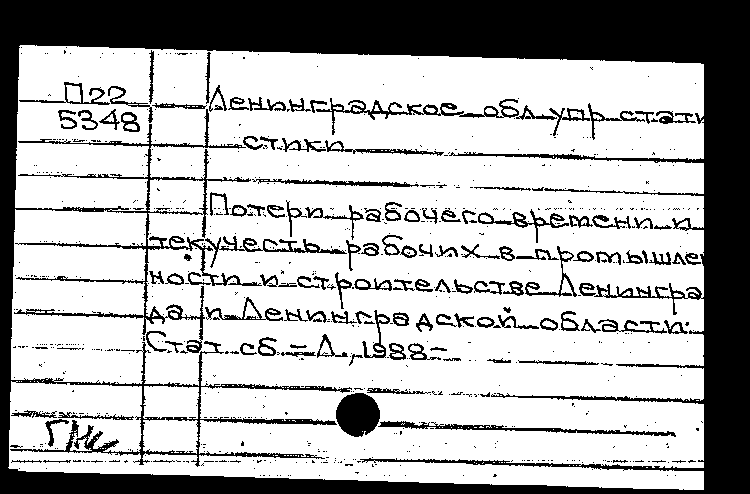 П22
5348
Ленинградское обл упр стати
стики
Потери рабочего времени и
текучесть рабочих в промышлен
ности и строительстве Ленингра
да и Ленинградской области:
Стат сб – Л., 1988 –